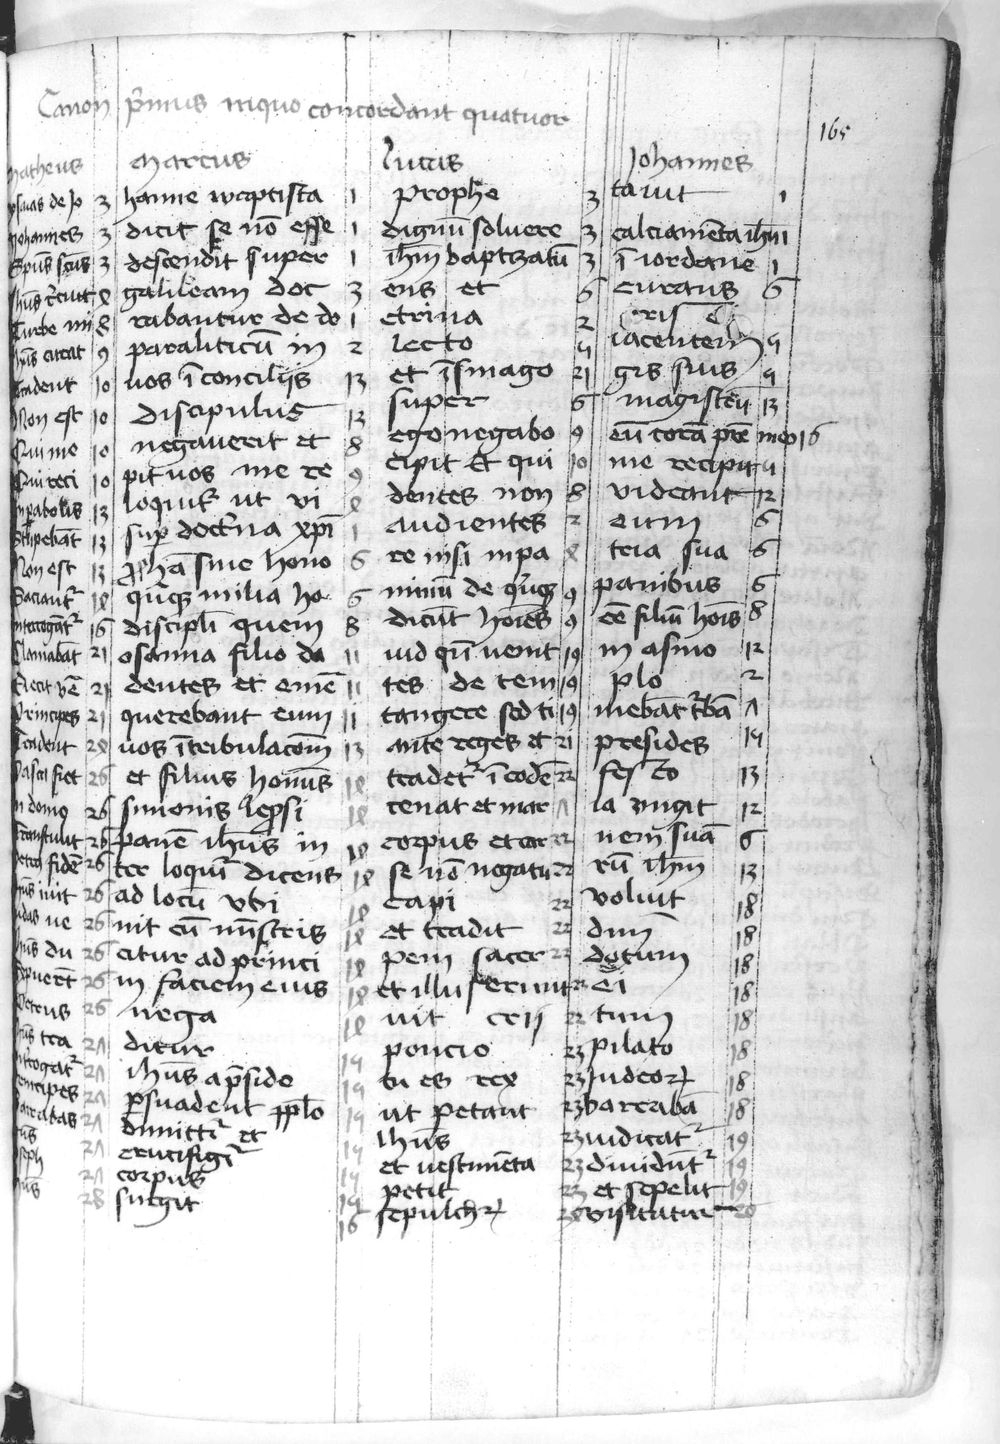 Canon p̄mus inquo concordant quatuor
165
Matheus Marcus lucas Johannes
ysaias de Jo 3 hanne baptista 1 prophe 3 tauit 1
Johannes 3 dicit se nō esse 1 dignū soluere 3 calciamēta ihm 1
Spūs sc̄us 3 descendit super 1 ihm baptizatū 3 ī iordane 1
galileam doc 3 ens et 6 curans 6
Turbe mi 8 rabantur de do 1 ctrina 2
9 paraliticū in 2 lecto 9 iacentem 9
Tradent 10 uos ī conciliis 13 et ī sinago 21 gis suis 9
Non est 10 discipulus 13 super 6 magistrū 13
Qui me 10 negauerit et 8 ego negabo 9 eū corā pr̄e meo 16
Qui reci 10 pit uos me re 9 cipit Et qui 10 me recipit 9
In pabolis 13 loquit᷑ ut vi dentes non 8 videant 12
Stupebāt 13 sup doct̄na xp̄i 1 audientes 2 eum 6
Non est 13 ꝓphā sine hono 6 re nisi inpa tria sua 6
Saciant᷑ qn̄qꝫ milia ho 6 minū de qn̄qꝫ 9 panibus 6
Interrogāt᷑ 16 discipl̄i quem 8 dicūt hoīes 9 eē filiū hoīs 8
Clamabāt 21 osanna filio da 11 uid qn̄ uenit 19 in asino 12
Eiecit vē 21 dentes et emē 11 tes de tem 19 plo 2
Principes 21 querebant eum 11 tangere sed ti 19 mebāt t̄bā
Tradent uos ī tribulacōem 13 ante reges et 21 presides
Pasca fiet 26 et filius hominis tradet᷑ ī eodē 22 festo 13
In domo 26 simonis lep̄si cenat et mar la ungit 12
26 panē ihūs in corpus et car 22 nem suā 6
Petrū fidē 26 ter loquit᷑ dicens se nō negatu 22 rū ihm 13
26 ad locū vbi capi 22 voluit 18
Judas ue 26 nit cū mīstris et tradit 22 dn̄m 18
ihūs du 26 citur ad princi pem sacer 22 dotum 18
Expuerūt 26 in faciem eius et illuserunt 22 ei 18
Petrus 26 nega uit 22 tum 18
ihūs tra ditur poncio 23 pilato 18
Interrogat᷑ ihūs a p̄side tu es rex 23 Judeoꝝ 18
Principes ꝑsuadent ppl̄o ut petant 23 barrabā 18
Barrabas dimittit᷑ et ihūs 23 iudicat᷑ 19
crucifigit᷑ et uestimēta 23 diuidūt᷑ 19
Joseph corpus petit 23 et sepelit 19
28 surgit 16 sepulchꝝ visitatur 20